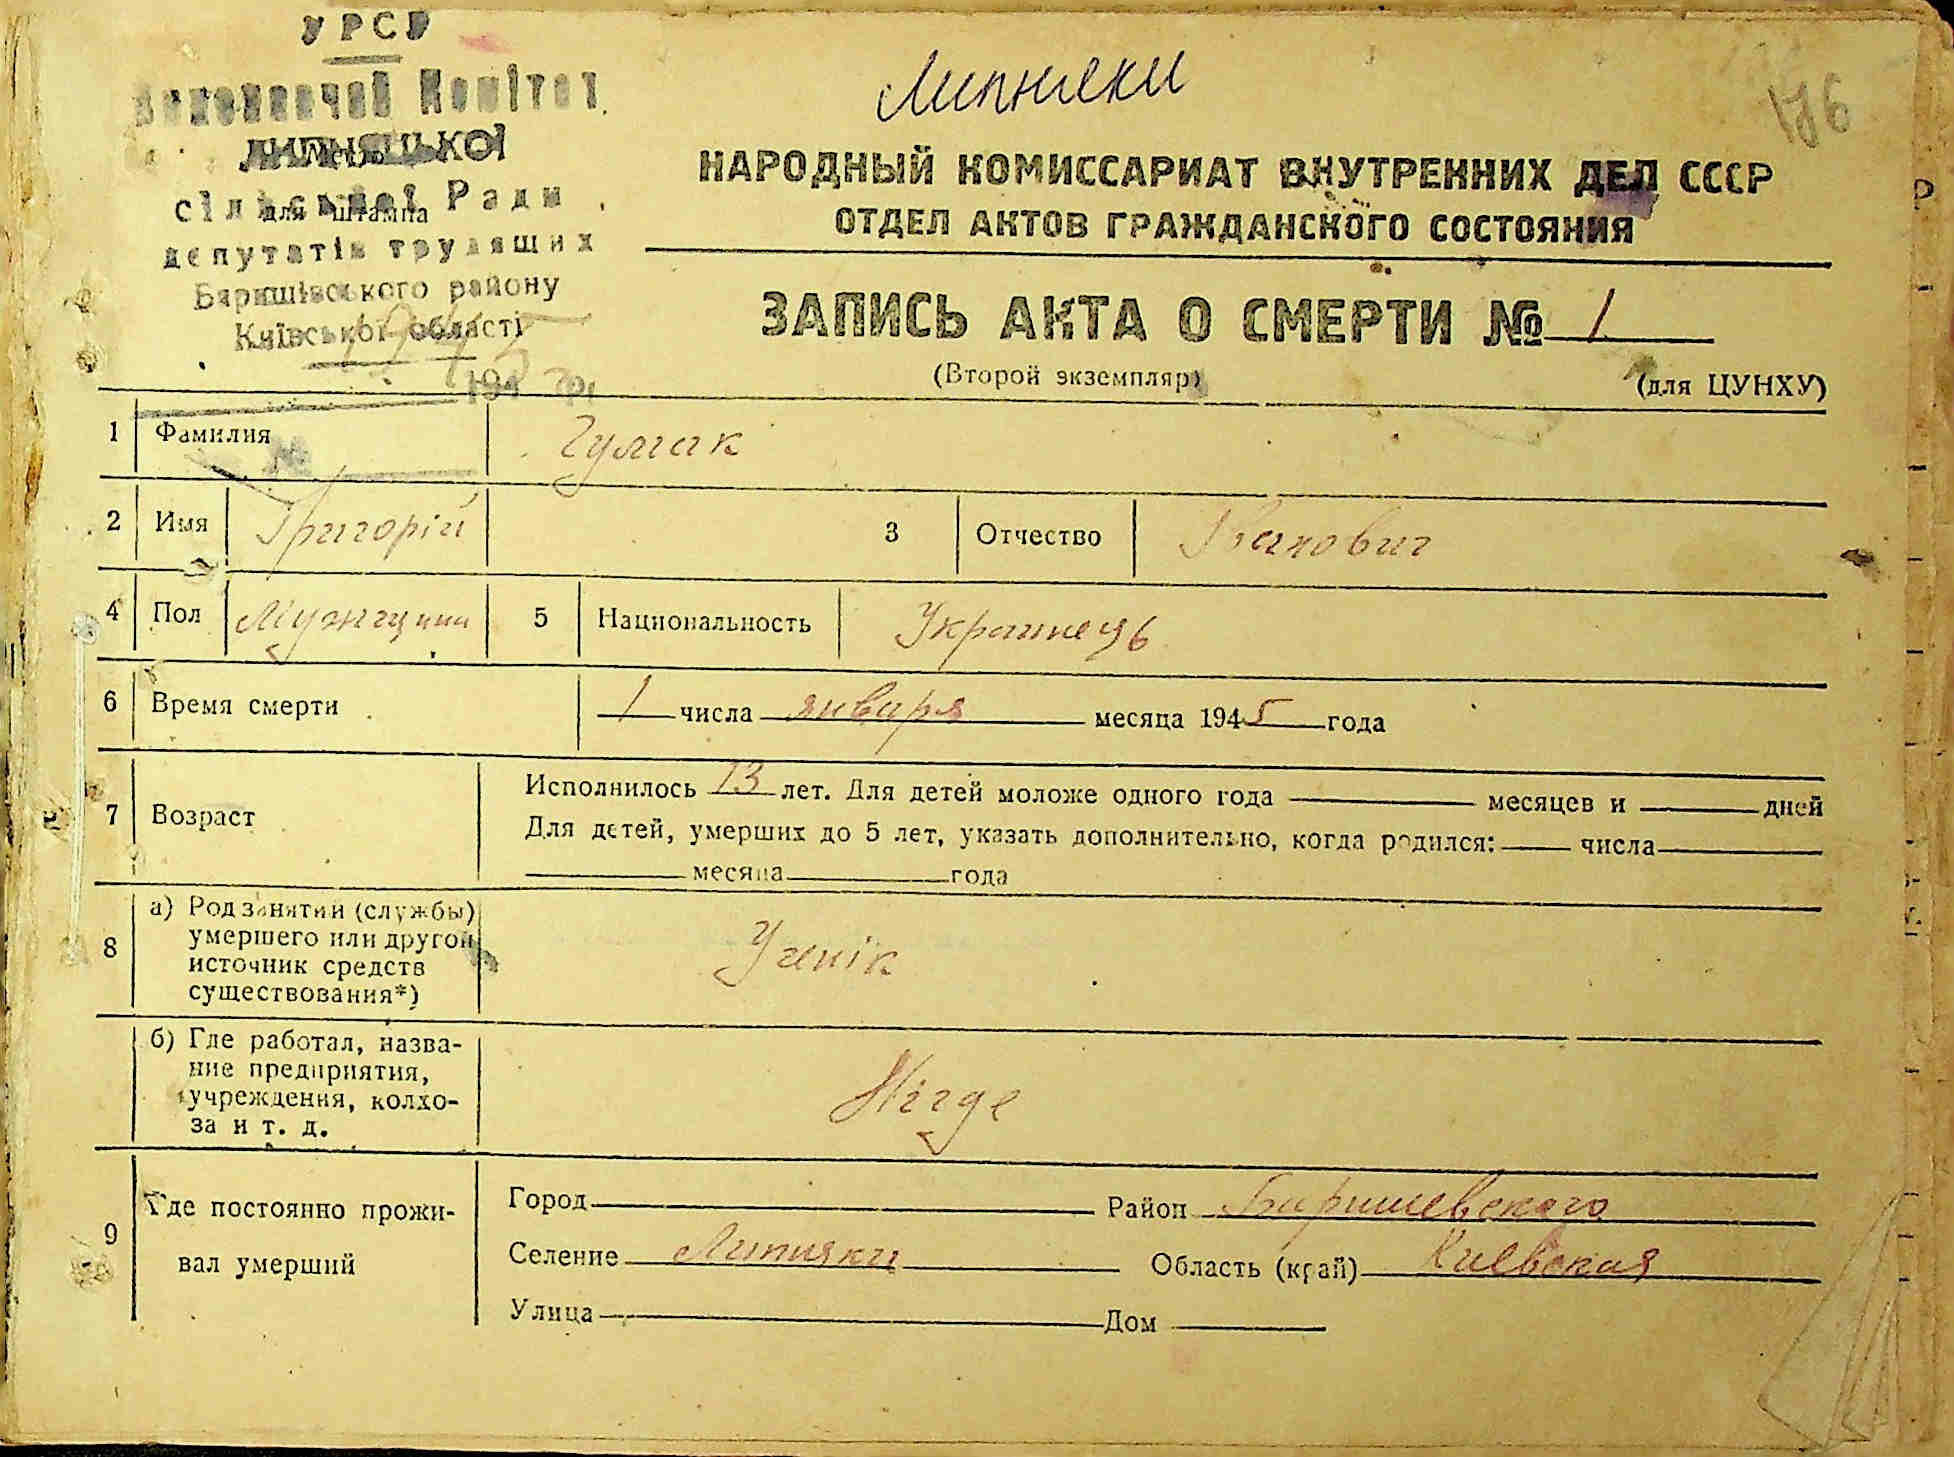 УРСР
Виконавчий Комітет
ЛИПНЯЦЬКОЇ
сільської Ради
для штампа
депутатів трудящих
Баришівського району
Київської області
194 г.
Липняки
176
НАРОДНЫЙ КОМИССАРИАТ ВНУТРЕННИХ ДЕЛ СССР
ОТДЕЛ АКТОВ ГРАЖДАНСКОГО СОСТОЯНИЯ
ЗАПИСЬ АКТА О СМЕРТИ № 1
(Второй экземпляр)
(для ЦУНХУ)
1 Фамилия Чумак
2 Имя Григорій 3 Отчество Іванович
4 Пол Мужчина 5 Национальность Украинець
6 Время смерти 1 числа января месяца 1945 года
7 Возраст Исполнилось 13 лет. Для детей моложе одного года месяцев и дней
Для детей, умерших до 5 лет, указать дополнительно, когда родился: числа
месяца года
8 а) Род занятий (службы)
умершего или другой
источник средств
существования*)
Ученік
б) Где работал, назва-
ние предприятия,
учреждения, колхо-
за и т. д.
Нігде
9 Где постоянно прожи-
вал умерший
Город Район Баришевского
Селение Липняки Область (край) Киевская
Улица Дом